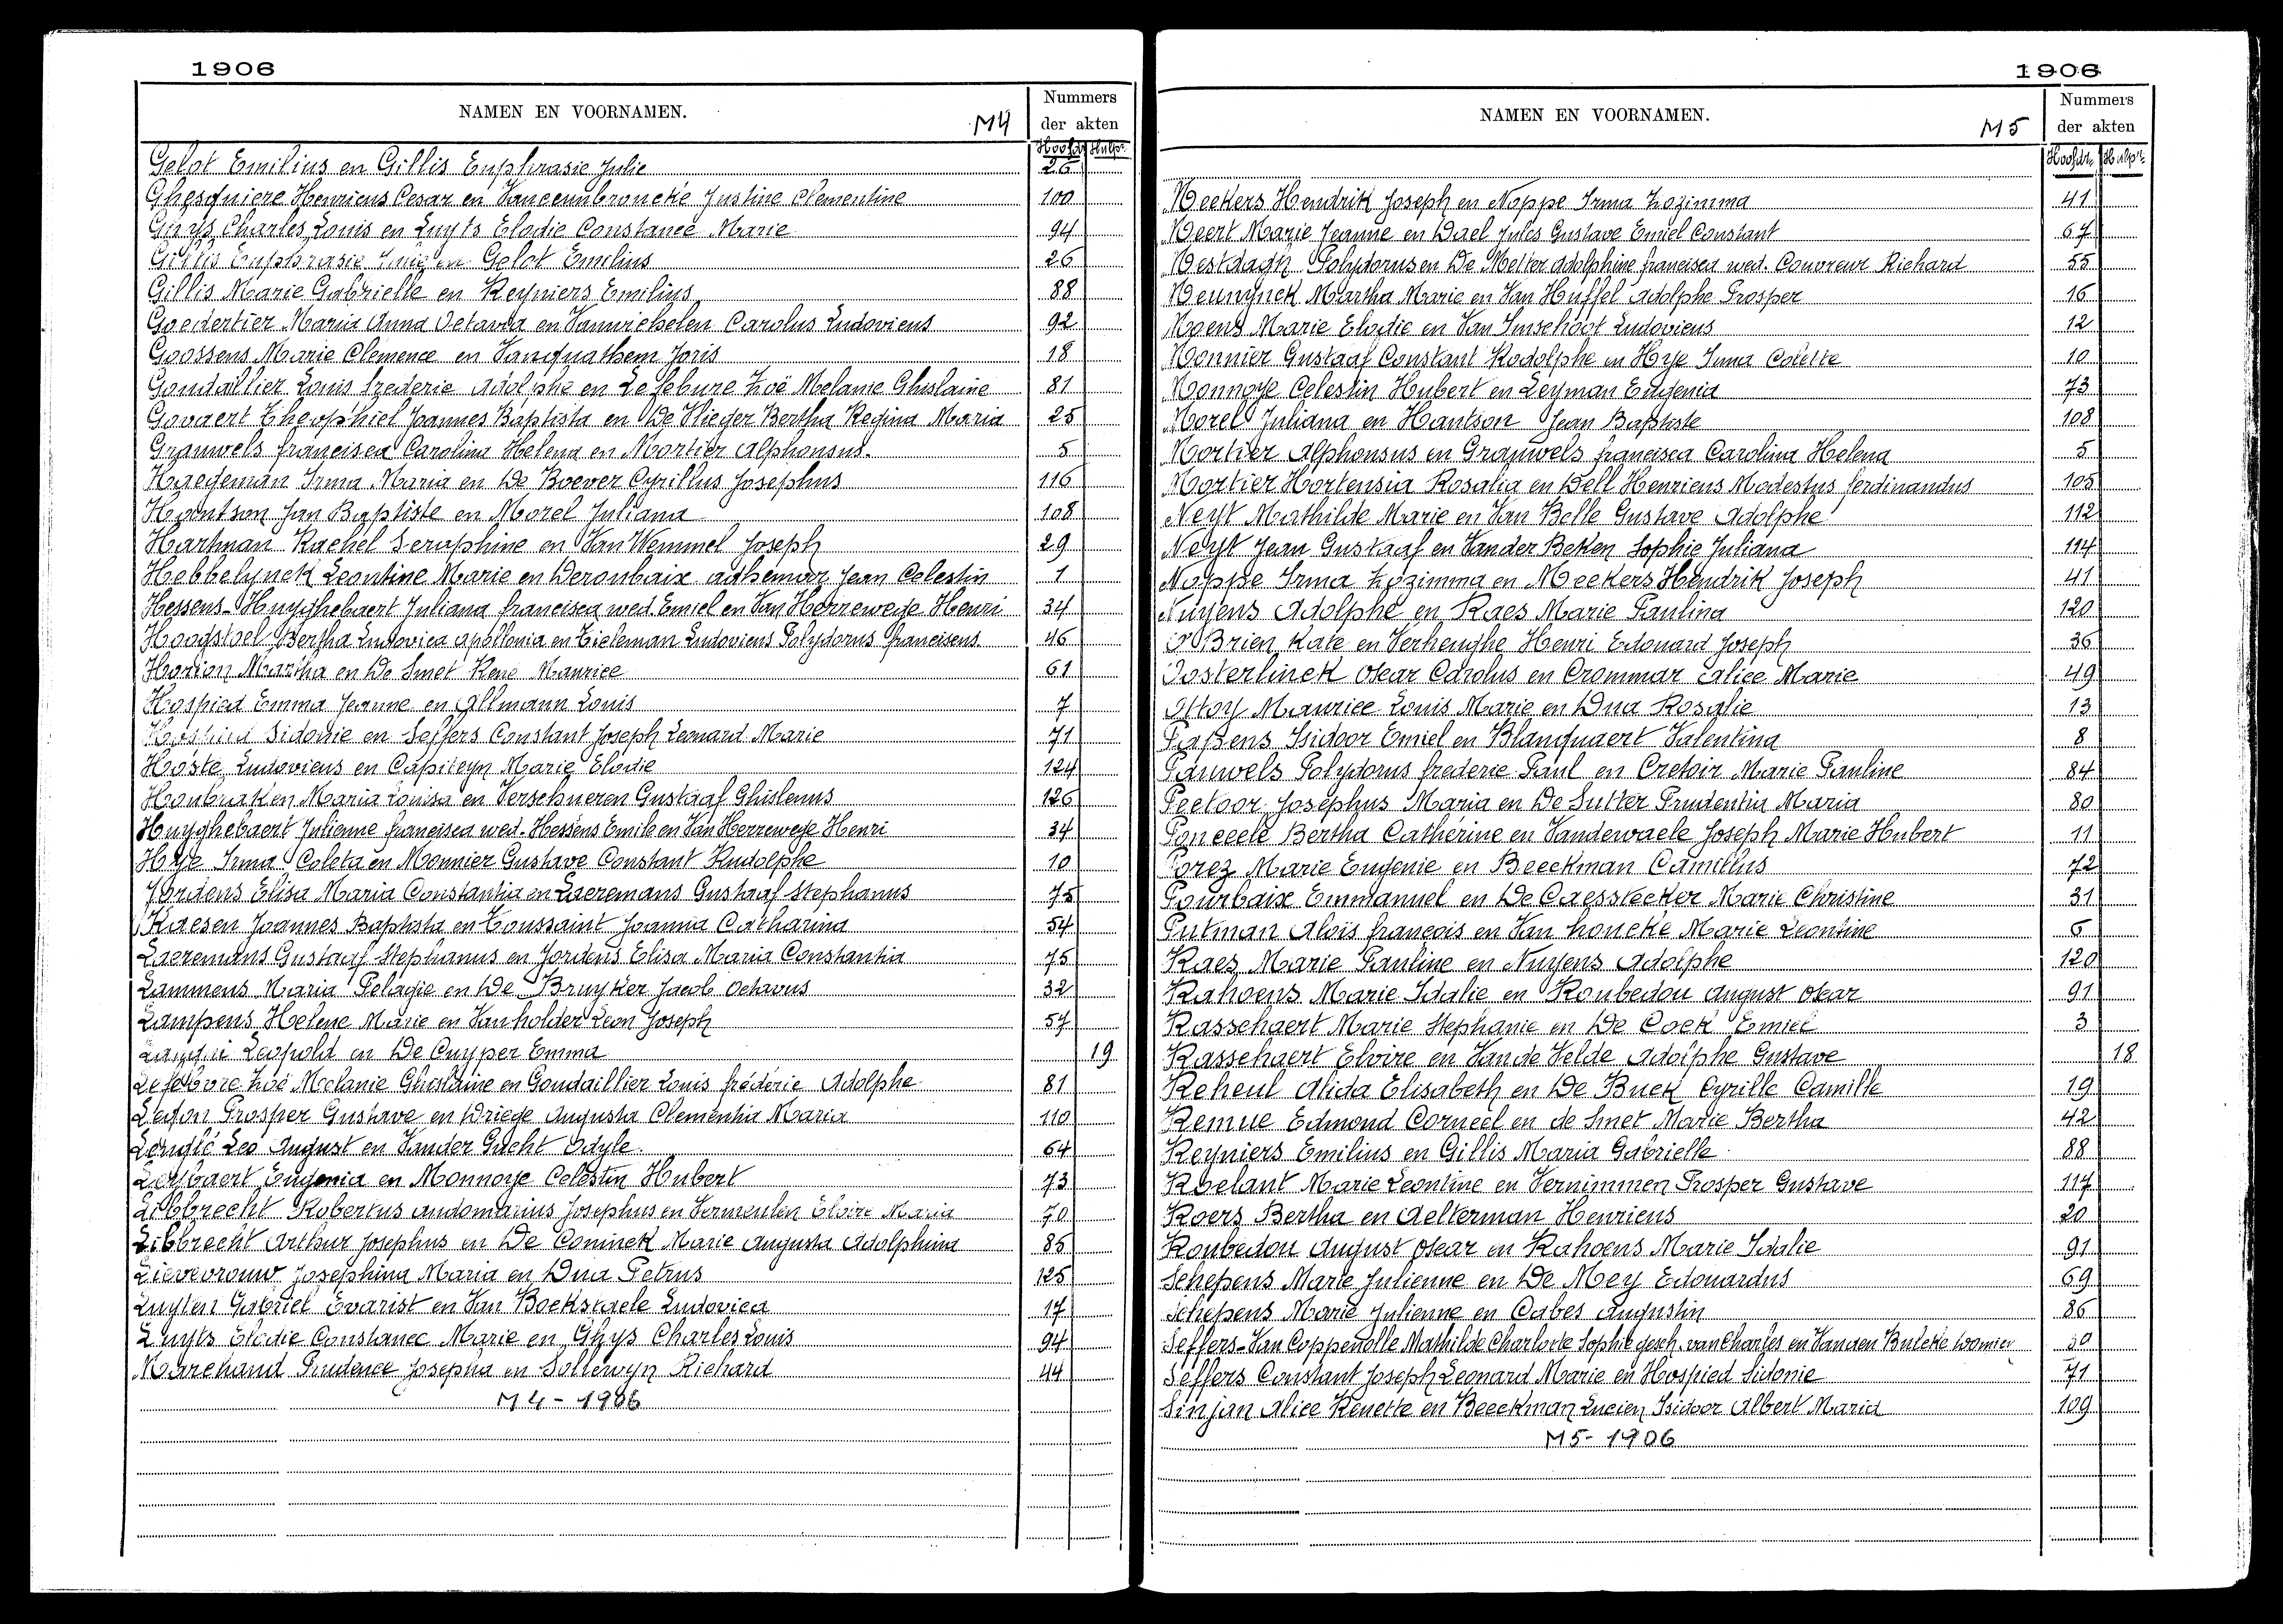 1906
NAMEN EN VOORNAMEN.
M4
Nummers
der akten
Hoofdr. Hulpr.
Gelot Emilius en Gillis Euphrasie Julie 26
Ghesquiere Henricus Cesar en Vanceunbroucke Justine Clementine 100
Ghys Charles Louis en Luyts Elodie Constance Marie 94
Gillis Euphrasie Julie en Gelot Emilius 26
Gillis Marie Gabrielle en Reyniers Emilius 88
Goedertier Maria Anna Octavia en Vanwichelen Carolus Ludovicus 92
Goossens Marie Clemence en Vanquathem Joris 18
Goudaillier Louis Frederic Adolphe en Lefebure Zoë Melanie Ghislaine 81
Govaert Theophiel Joannes Baptista en De Vlieger Bertha Regina Maria 25
Grauwels Francisca Carolina Helena en Mortier Alphonsus. 5
Haegeman Irma Maria en De Boever Cyrillus Josephus 116
Hantson Jan Baptiste en Morel Juliana 108
Hartman Rachel Seraphine en Van Wemmel Joseph 29
Hebbelynck Leontine Marie en Deroubaix Adhemar Jean Celestin 1
Hessens-Huyghebaert Juliana Francisca wed. Emiel en Van Herrewege Henri 34
Hoogstoel Bertha Ludovica Apollonia en Tieleman Ludovicus Polydorus Franciscus 46
Horion Martha en De Smet René Maurice 61
Hospied Emma Jeanne en Allmann Louis 7
Hospied Sidonie en Seffers Constant Joseph Leonard Marie 71
Hoste Ludovicus en Capiteyn Marie Elodie 124
Houbraken Maria Louisa en Verschueren Gustaaf Ghislenus 126
Huyghebaert Julienne Francisca wed. Hessens Emile en Van Herrewege Henri 34
Hye Irma Coleta en Monnier Gustave Constant Rudolphe 10
Jordens Elisa Maria Constantia en Laeremans Gustaaf Stephanus 75
Kaesen Joannes Baptista en Toussaint Joanna Catharina 54
Laeremans Gustaaf Stephanus en Jordens Elisa Maria Constantia 75
Lammens Maria Pelagie en De Bruyker Jacob Octavus 32
Lampens Helene Marie en Vanholder Leon Joseph 57
Leopold en De Cuyper Emma 19
Lefebvre Zoé Melanie Ghislaine en Goudaillier Louis Frédéric Adolphe 81
Legon Prosper Gustave en Driege Augusta Clementia Maria 110
Lenglé Leo August en Vander Gucht Odyle. 64
Eugenia en Monnoye Celestin Hubert 73
Libbrecht Robertus Audomarius Josephus en Vermeulen Elvire Maria 70
Libbrecht Arthur Josephus en De Coninck Marie Augusta Adolphina 85
Lievevrouw Josephina Maria en Dua Petrus 125
Luyten Gabriel Evarist en Van Bockstaele Ludovica 17
Luyts Elodie Constance Marie en Ghys Charles Louis 94
Marchand Prudence Josepha en Sollewyn Richard 44
M4 - 1906
1906
NAMEN EN VOORNAMEN.
M5
Nummers
der akten
Hoofdr. Hulpr.
Meekers Hendrik Joseph en Noppe Irma Zozimma 41
Meert Marie Jeanne en Dael Jules Gustave Emiel Constant 67
Mestdagh Polydorus en De Metter Adolphine Francisca wed. Couvreur Richard 55
Meunynck Martha Marie en Van Huffel Adolphe Prosper 16
Moens Marie Elodie en Van Imschoot Ludovicus 12
Monnier Gustaaf Constant Rodolphe en Hye Irma Colette 10
Monnoye Celestin Hubert en Leyman Eugenia 73
Morel Juliana en Hantson Jean Baptiste 108
Mortier Alphonsus en Grauwels Francisca Carolina Helena 5
Mortier Hortensia Rosalia en Dell Henricus Modestus Ferdinandus 105
Neyt Mathilde Marie en Van Belle Gustave Adolphe 112
Neyt Jean Gustaaf en Vander Beken Sophie Juliana 114
Noppe Irma Zozimma en Meekers Hendrik Joseph 41
Nuyens Adolphe en Raes Marie Paulina 120
O'Brien Kate en Verheughe Henri Edouard Joseph 36
Oosterlinck Oscar Carolus en Crommar Alice Marie 49
Ottoy Maurice Louis Marie en Dua Rosalie 13
Passens Isidoor Emiel en Blanquaert Valentina 8
Pauwels Polydorus Frederic Paul en Cretoir Marie Pauline 84
Peetoor Josephus Maria en De Sutter Prudentia Maria 80
Ponceele Bertha Cathérine en Vandewaele Joseph Marie Hubert 11
Porez Marie Eugenie en Beeckman Camillus 72
Pourbaix Emmanuel en De Caesstecker Marie Christine 31
Putman Aloïs François en Van Houcke Marie Leontine 6
Raes Marie Pauline en Nuyens Adolphe 120
Rahoens Marie Idalie en Roubedou August Oscar 91
Rasschaert Marie Stephanie en De Cock Emiel 3
Rasschaert Elvire en Van de Velde Adolphe Gustave 18
Reheul Alida Elisabeth en De Buck Cyrille Camille 19
Remue Edmond Corneel en de Smet Marie Bertha 42
Reyniers Emilius en Gillis Maria Gabrielle 88
Roelant Marie Leontine en Vernimmen Prosper Gustave 117
Roers Bertha en Aelterman Henricus 20
Roubedou August Oscar en Rahoens Marie Idalie 91
Schepens Marie Julienne en De Mey Edouardus 69
Schepens Marie Julienne en Cabes Augustin 86
Seffers-Van Coppenolle Mathilde Charlotte Sophie gesch. van Charles en Vanden Bulcke 30
Seffers Constant Joseph Leonard Marie en Hospied Sidonie 71
Sinjan Alice Renette en Beeckman Lucien Isidoor Albert Maria 109
M5 - 1906